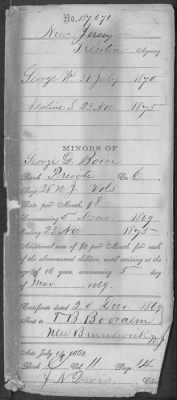 No. 137,671
New Jersey
Trenton Agency
George W. 21 July 1870
Adaline S. 23 Nov 1875
MINORS OF
George D. Boice
Rank Private Co. 6
Reg't 28 N.J. Vols
Rate per Month, $8
Commencing 5 Mar 1869
Ending 23 Nov 1875
Additional sum of $2 per Month for each
of the abovenamed children, until arriving at the
age of 16 years, commencing 5
of Mar 1869
Certificate dated 20 Decr 1869
Sent to T B Booraem
New Brunswick N.J.
Act July 14 1862
Book Vol. 11 Page 14
Clerk